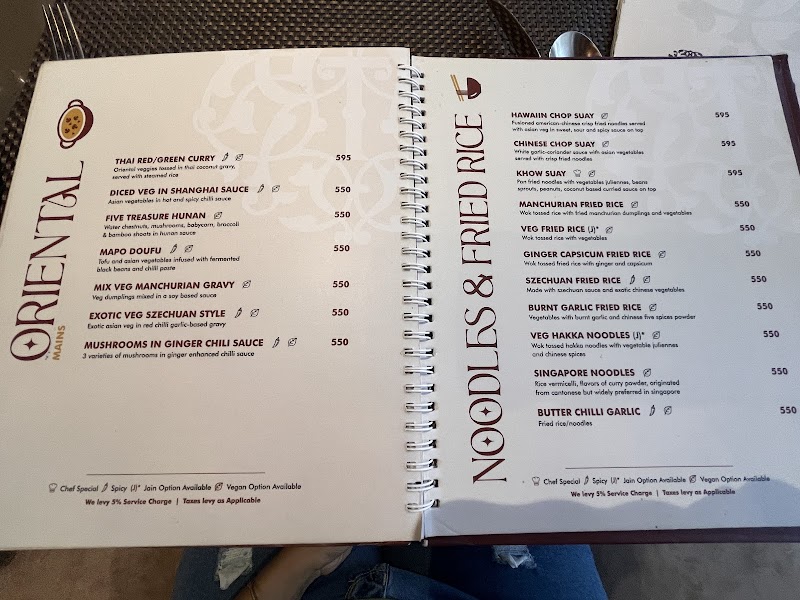 ORIENTAL
MAINS
THAI RED/GREEN CURRY 595
Oriental veggies tossed in thai coconut gravy,
served with steamed rice
DICED VEG IN SHANGHAI SAUCE 550
Asian vegetables in hot and spicy chilli sauce
FIVE TREASURE HUNAN 550
Water chestnuts, mushrooms, babycorn, broccoli
& bamboo shoots in hunan sauce
MAPO DOUFU 550
Tofu and asian vegetables infused with fermented
black beans and chilli paste
MIX VEG MANCHURIAN GRAVY 550
Veg dumplings mixed in a soy based sauce
EXOTIC VEG SZECHUAN STYLE 550
Exotic asian veg in red chilli garlic-based gravy
MUSHROOMS IN GINGER CHILI SAUCE 550
3 varieties of mushrooms in ginger enhanced chilli sauce
Chef Special Spicy (J)* Jain Option Available Vegan Option Available
We levy 5% Service Charge | Taxes levy as Applicable
NOODLES & FRIED RICE
HAWAIIN CHOP SUAY 595
Fusioned american-chinese crisp fried noodles served
with asian veg in sweet, sour and spicy sauce on top
CHINESE CHOP SUAY 595
White garlic-coriander sauce with asian vegetables
served with crisp fried noodles
KHOW SUAY 595
Pan fried noodles with vegetable juliennes, beans
sprouts, peanuts, coconut based curried sauce on top
MANCHURIAN FRIED RICE 550
Wok tossed rice with fried manchurian dumplings and vegetables
VEG FRIED RICE (J)* 550
Wok tossed rice with vegetables
GINGER CAPSICUM FRIED RICE 550
Wok tossed fried rice with ginger and capsicum
SZECHUAN FRIED RICE 550
Made with szechuan sauce and exotic chinese vegetables
BURNT GARLIC FRIED RICE 550
Vegetables with burnt garlic and chinese five spices powder
VEG HAKKA NOODLES (J)* 550
Wok tossed hakka noodles with vegetable juliennes
and chinese spices
SINGAPORE NOODLES 550
Rice vermicelli, flavors of curry powder, originated
from cantonese but widely preferred in singapore
BUTTER CHILLI GARLIC 550
Fried rice/noodles
Chef Special Spicy (J)* Jain Option Available Vegan Option Available
We levy 5% Service Charge | Taxes levy as Applicable